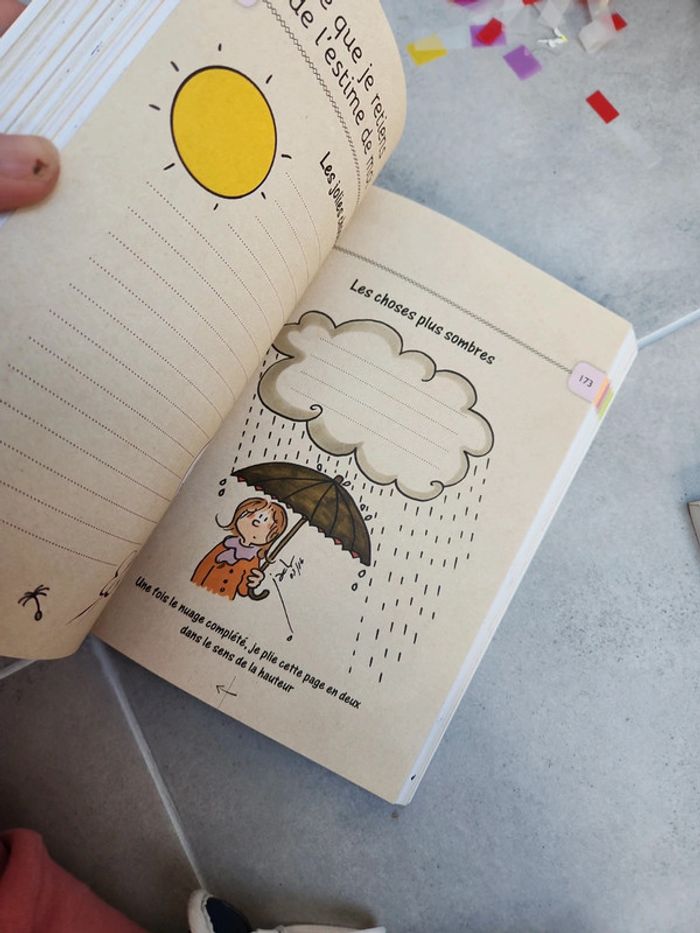 que je retiens
de l'estime de
Les jolies
Les choses plus sombres
173
Une fois le nuage complété, je plie cette page en deux
dans le sens de la hauteur